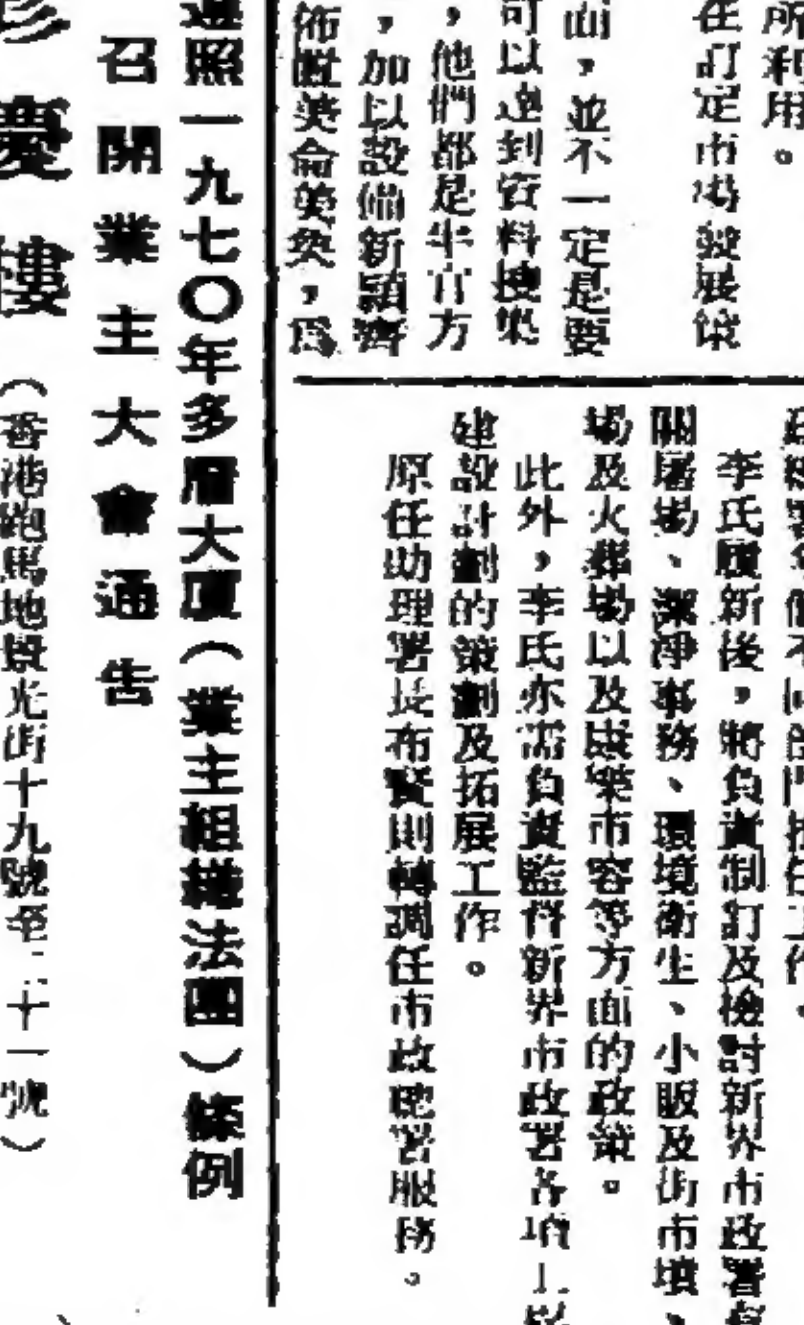 所利用。
在訂定市場發展策
面，並不一定是要
可以達到資料搜集
，他們都是半官方
，加以設備新穎濟
佈置美侖美奐，爲
政總署多個不同部門担任工作。
李氏履新後，將負責制訂及檢討新界市政署有
關屠場、潔淨事務、環境衞生、小販及街市墳、
場及火葬場以及康樂市容等方面的政策。
此外，李氏亦需負責監督新界市政署各項工
建設計劃的策劃及拓展工作。
原任助理署長布賢則轉調任市政總署服務。
遵照一九七〇年多層大廈（業主組織法團）條例
召開業主大會通告
慶樓（香港跑馬地景光街十九號至二十一號）